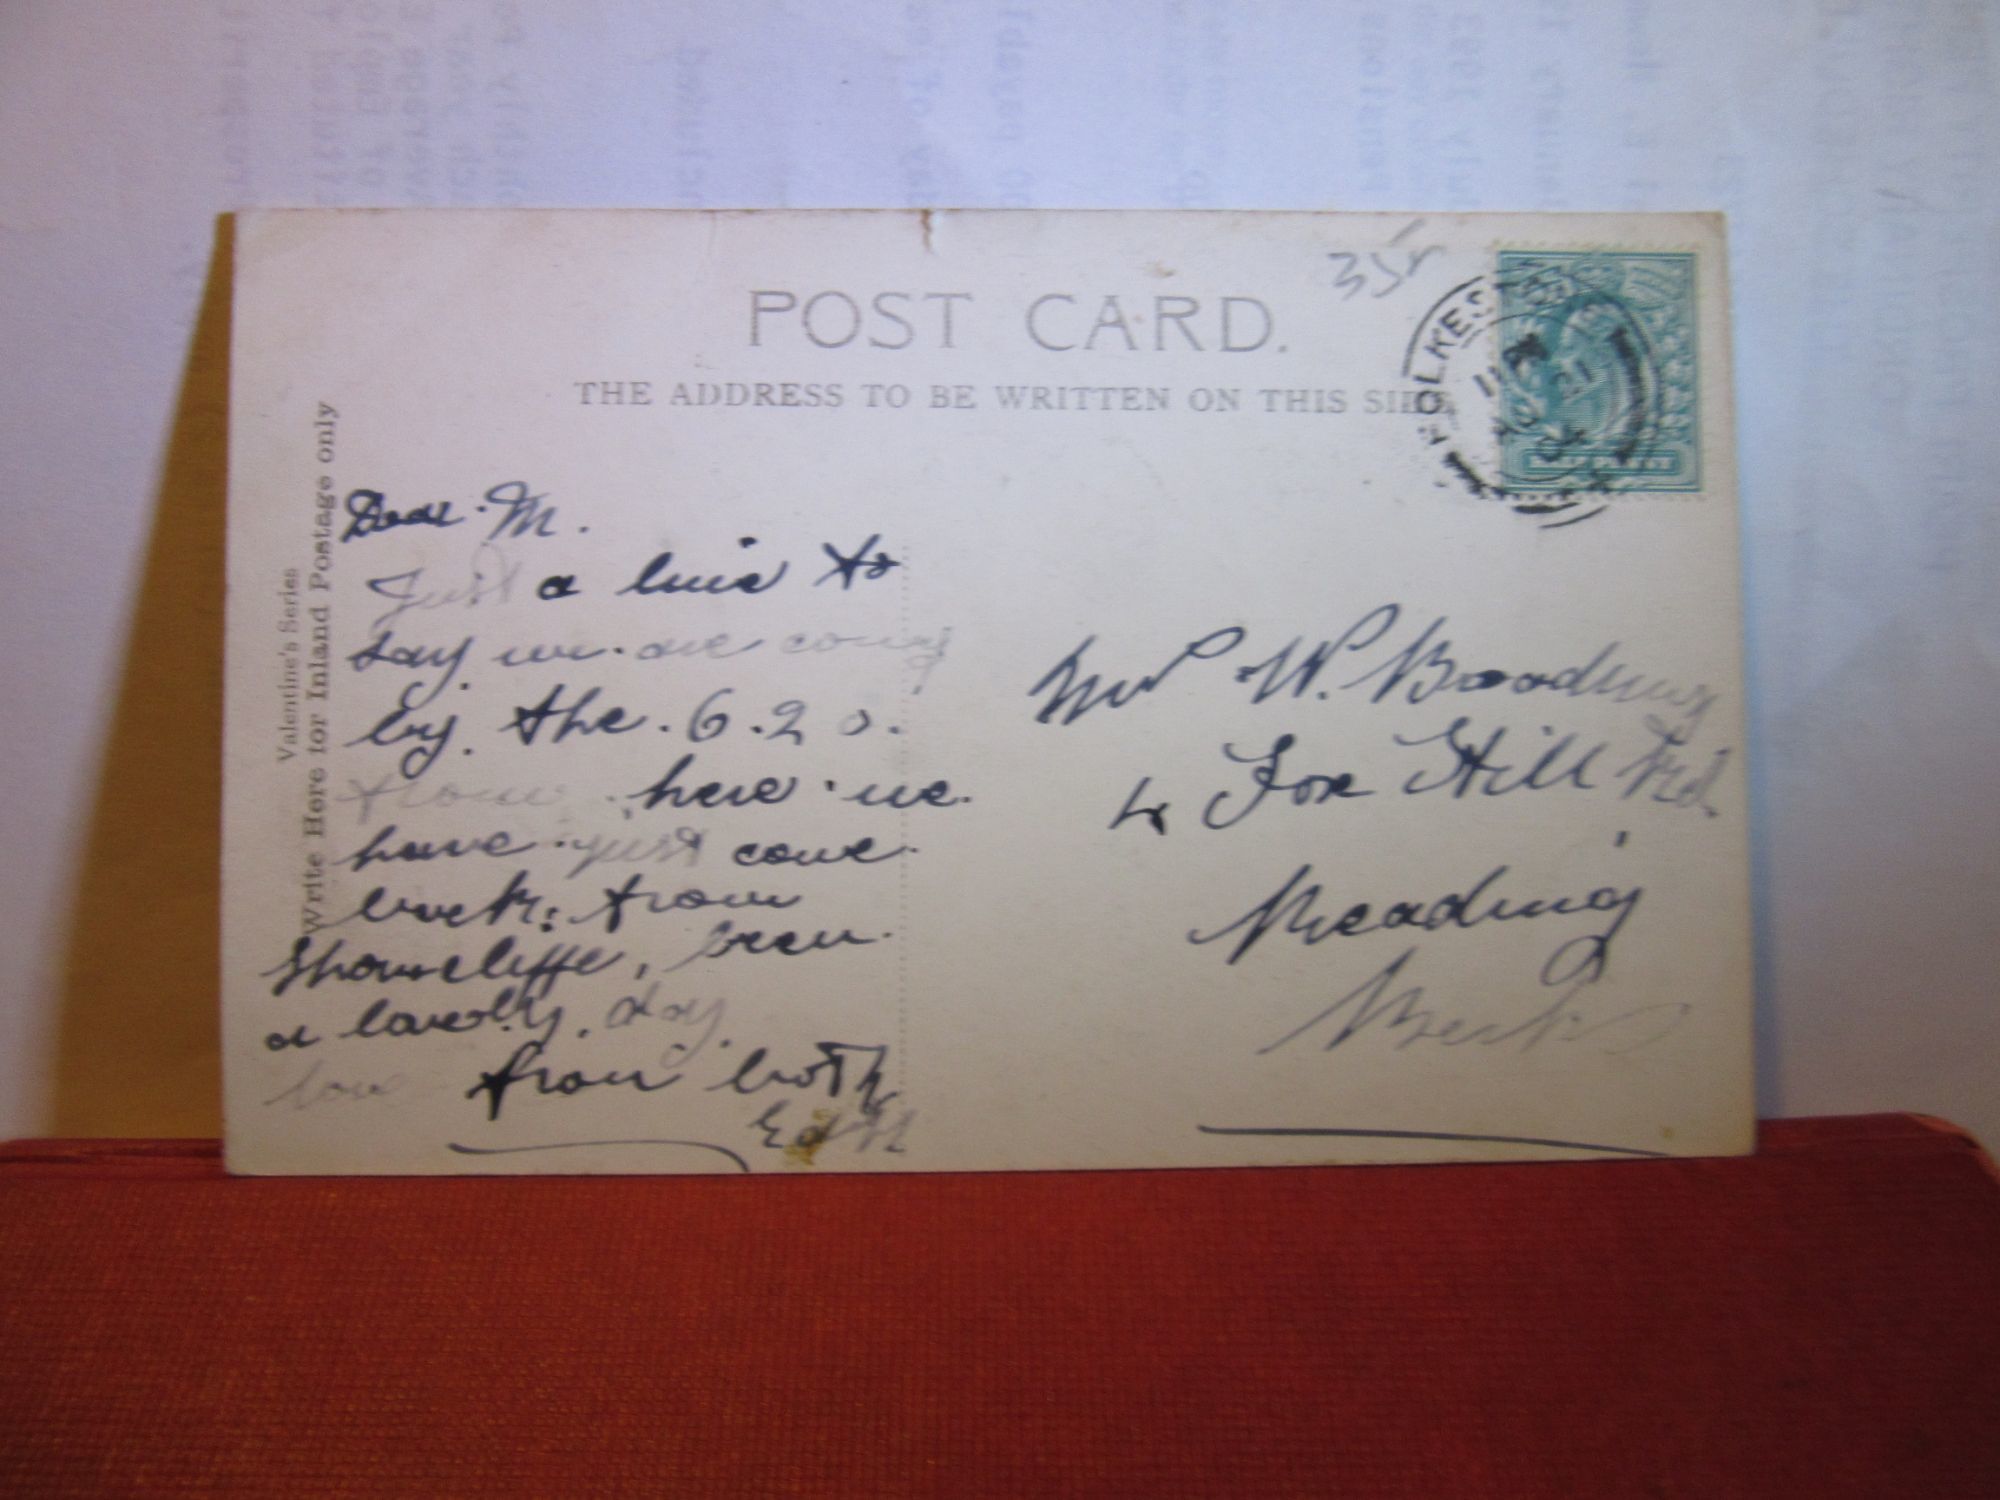 POST CARD.
THE ADDRESS TO BE WRITTEN ON THIS SIDE
Valentine's Series
Write Here for Inland Postage only
FOLKESTONE
Dear M.
Just a line to
say we are coming
by the 6.20.
from here we
have just come
back from
Shorncliffe, been
a lovely day
love from both
Edth
W. Gooding
4 Fox Hill Rd
Reading
Berks